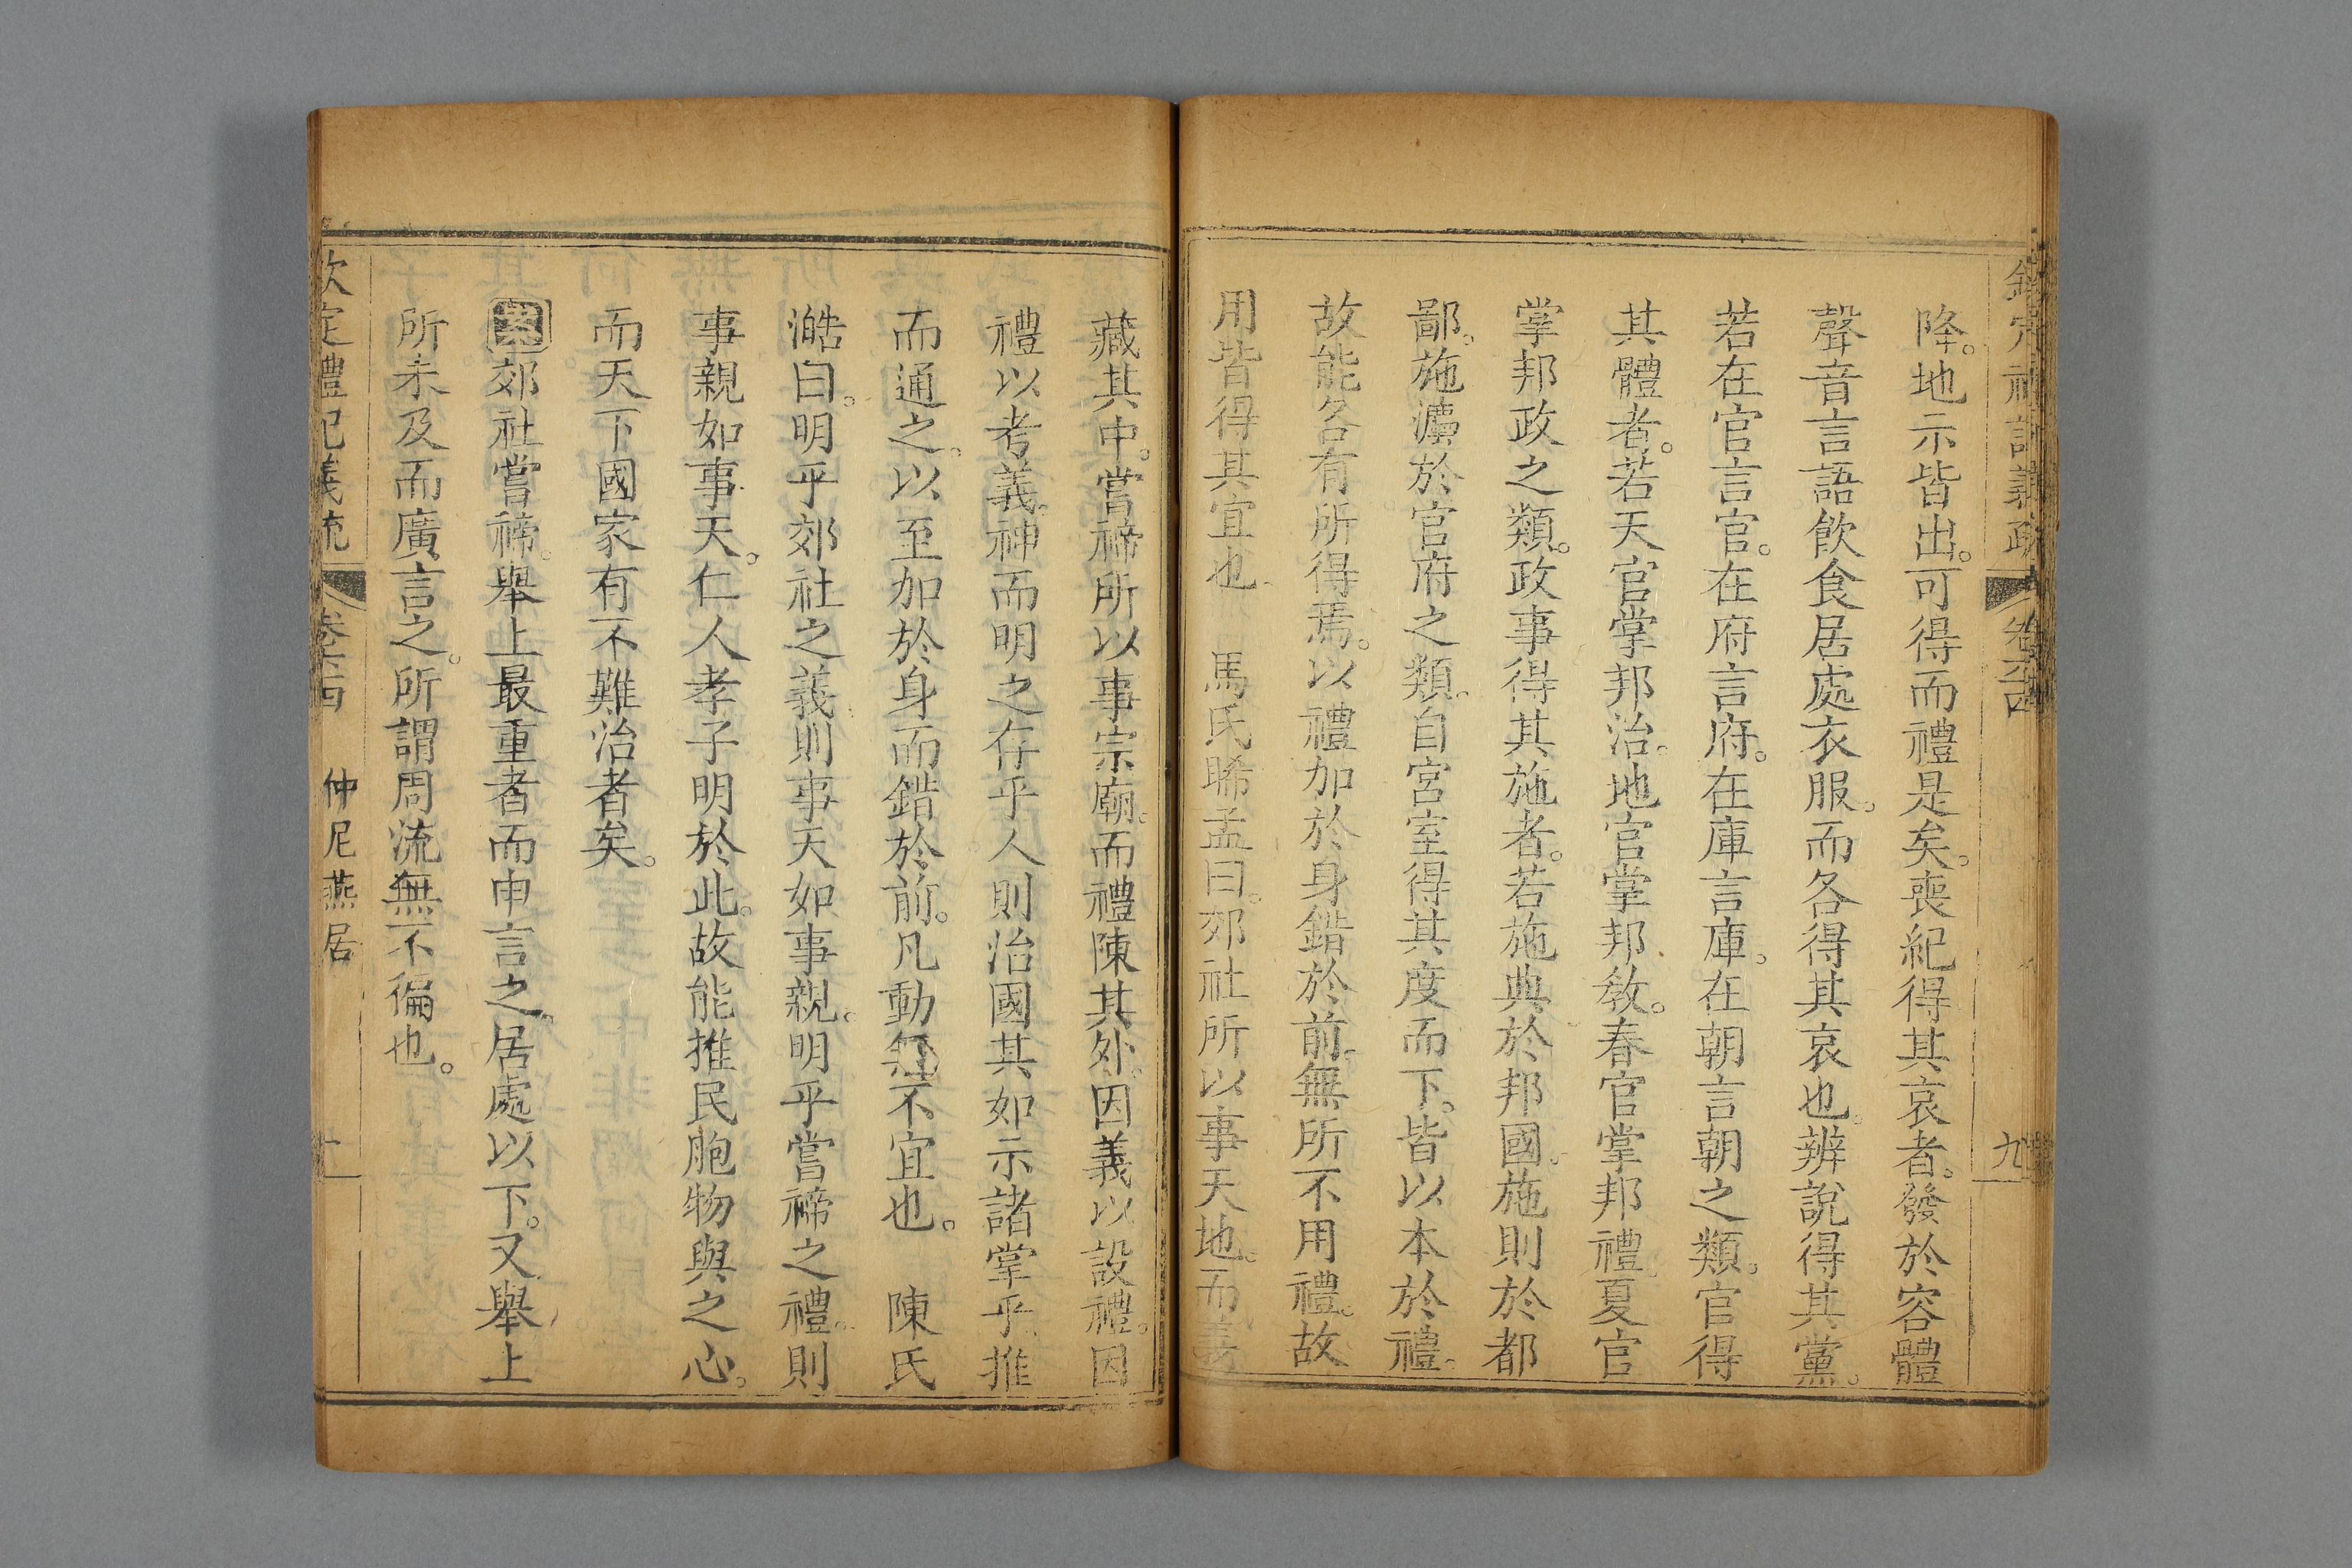 降。地示皆出。可得而禮是矣。喪紀得其哀者。發於容體
聲音言語飮食居處衣服。而各得其哀也。辨說得其黨。
若在官言官。在府言府。在庫言庫。在朝言朝之類。官得
其體者。若天官掌邦治。地官掌邦敎。春官掌邦禮。夏官
掌邦政之類。政事得其施者。若施典於邦國。施則於都
鄙。施灋於官府之類。自宮室得其度而下。皆以本於禮。
故能各有所得焉。以禮加於身錯於前。無所不用禮。故
用皆得其宜也。 馬氏晞孟曰。郊社所以事天地。而義
藏其中。嘗禘所以事宗廟。而禮陳其外。因義以設禮。因
禮以考義。神而明之存乎人則治國其如示諸掌乎。推
而通之。以至加於身而錯於前。凡動無不宜也。 陳氏
澔曰。明乎郊社之義。則事天如事親。明乎嘗禘之禮。則
事親如事天。仁人孝子明於此。故能推民胞物與之心。
而天下國家有不難治者矣。
郊社嘗禘。舉上最重者而申言之。居處以下。又舉上
所未及而廣言之。所謂周流無不徧也。
欽定禮記義疏 仲尼燕居
九